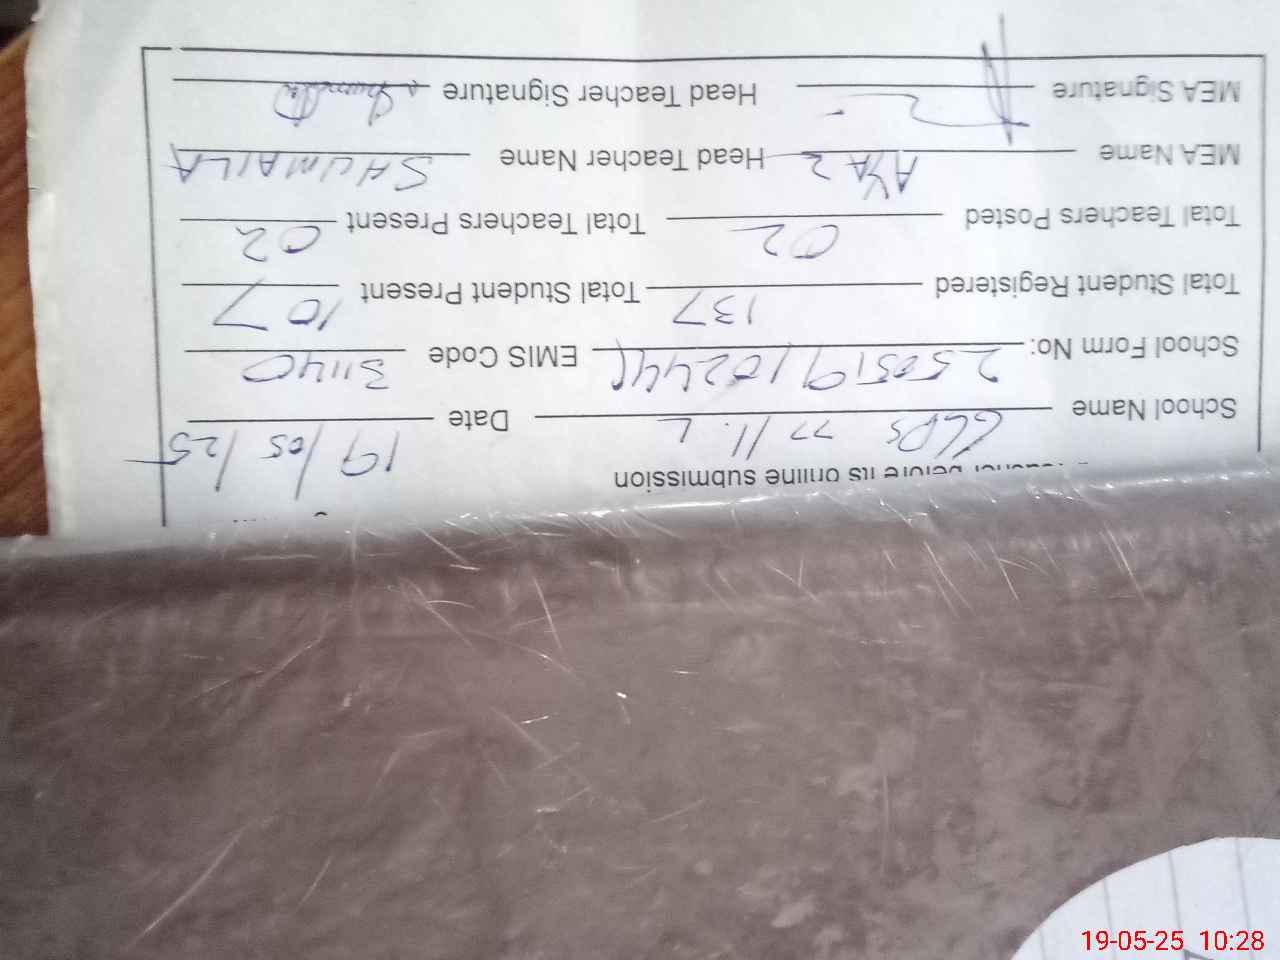 before its online submission
School Name GGPS 77/11.L Date 19/05/25
School Form No: EMIS Code 31140
Total Student Registered 137 Total Student Present 107
Total Teachers Posted 02 Total Teachers Present 02
MEA Name Head Teacher Name SHUMAILA
MEA Signature Head Teacher Signature
19-05-25 10:28